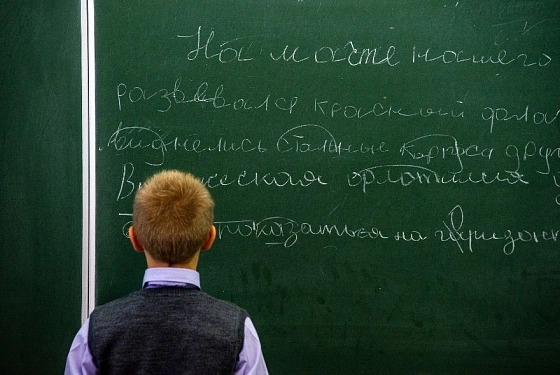 На мачте нашего
развевался красный фла
виднелись стальные корпуса друг
флотилия
показаться на горизон